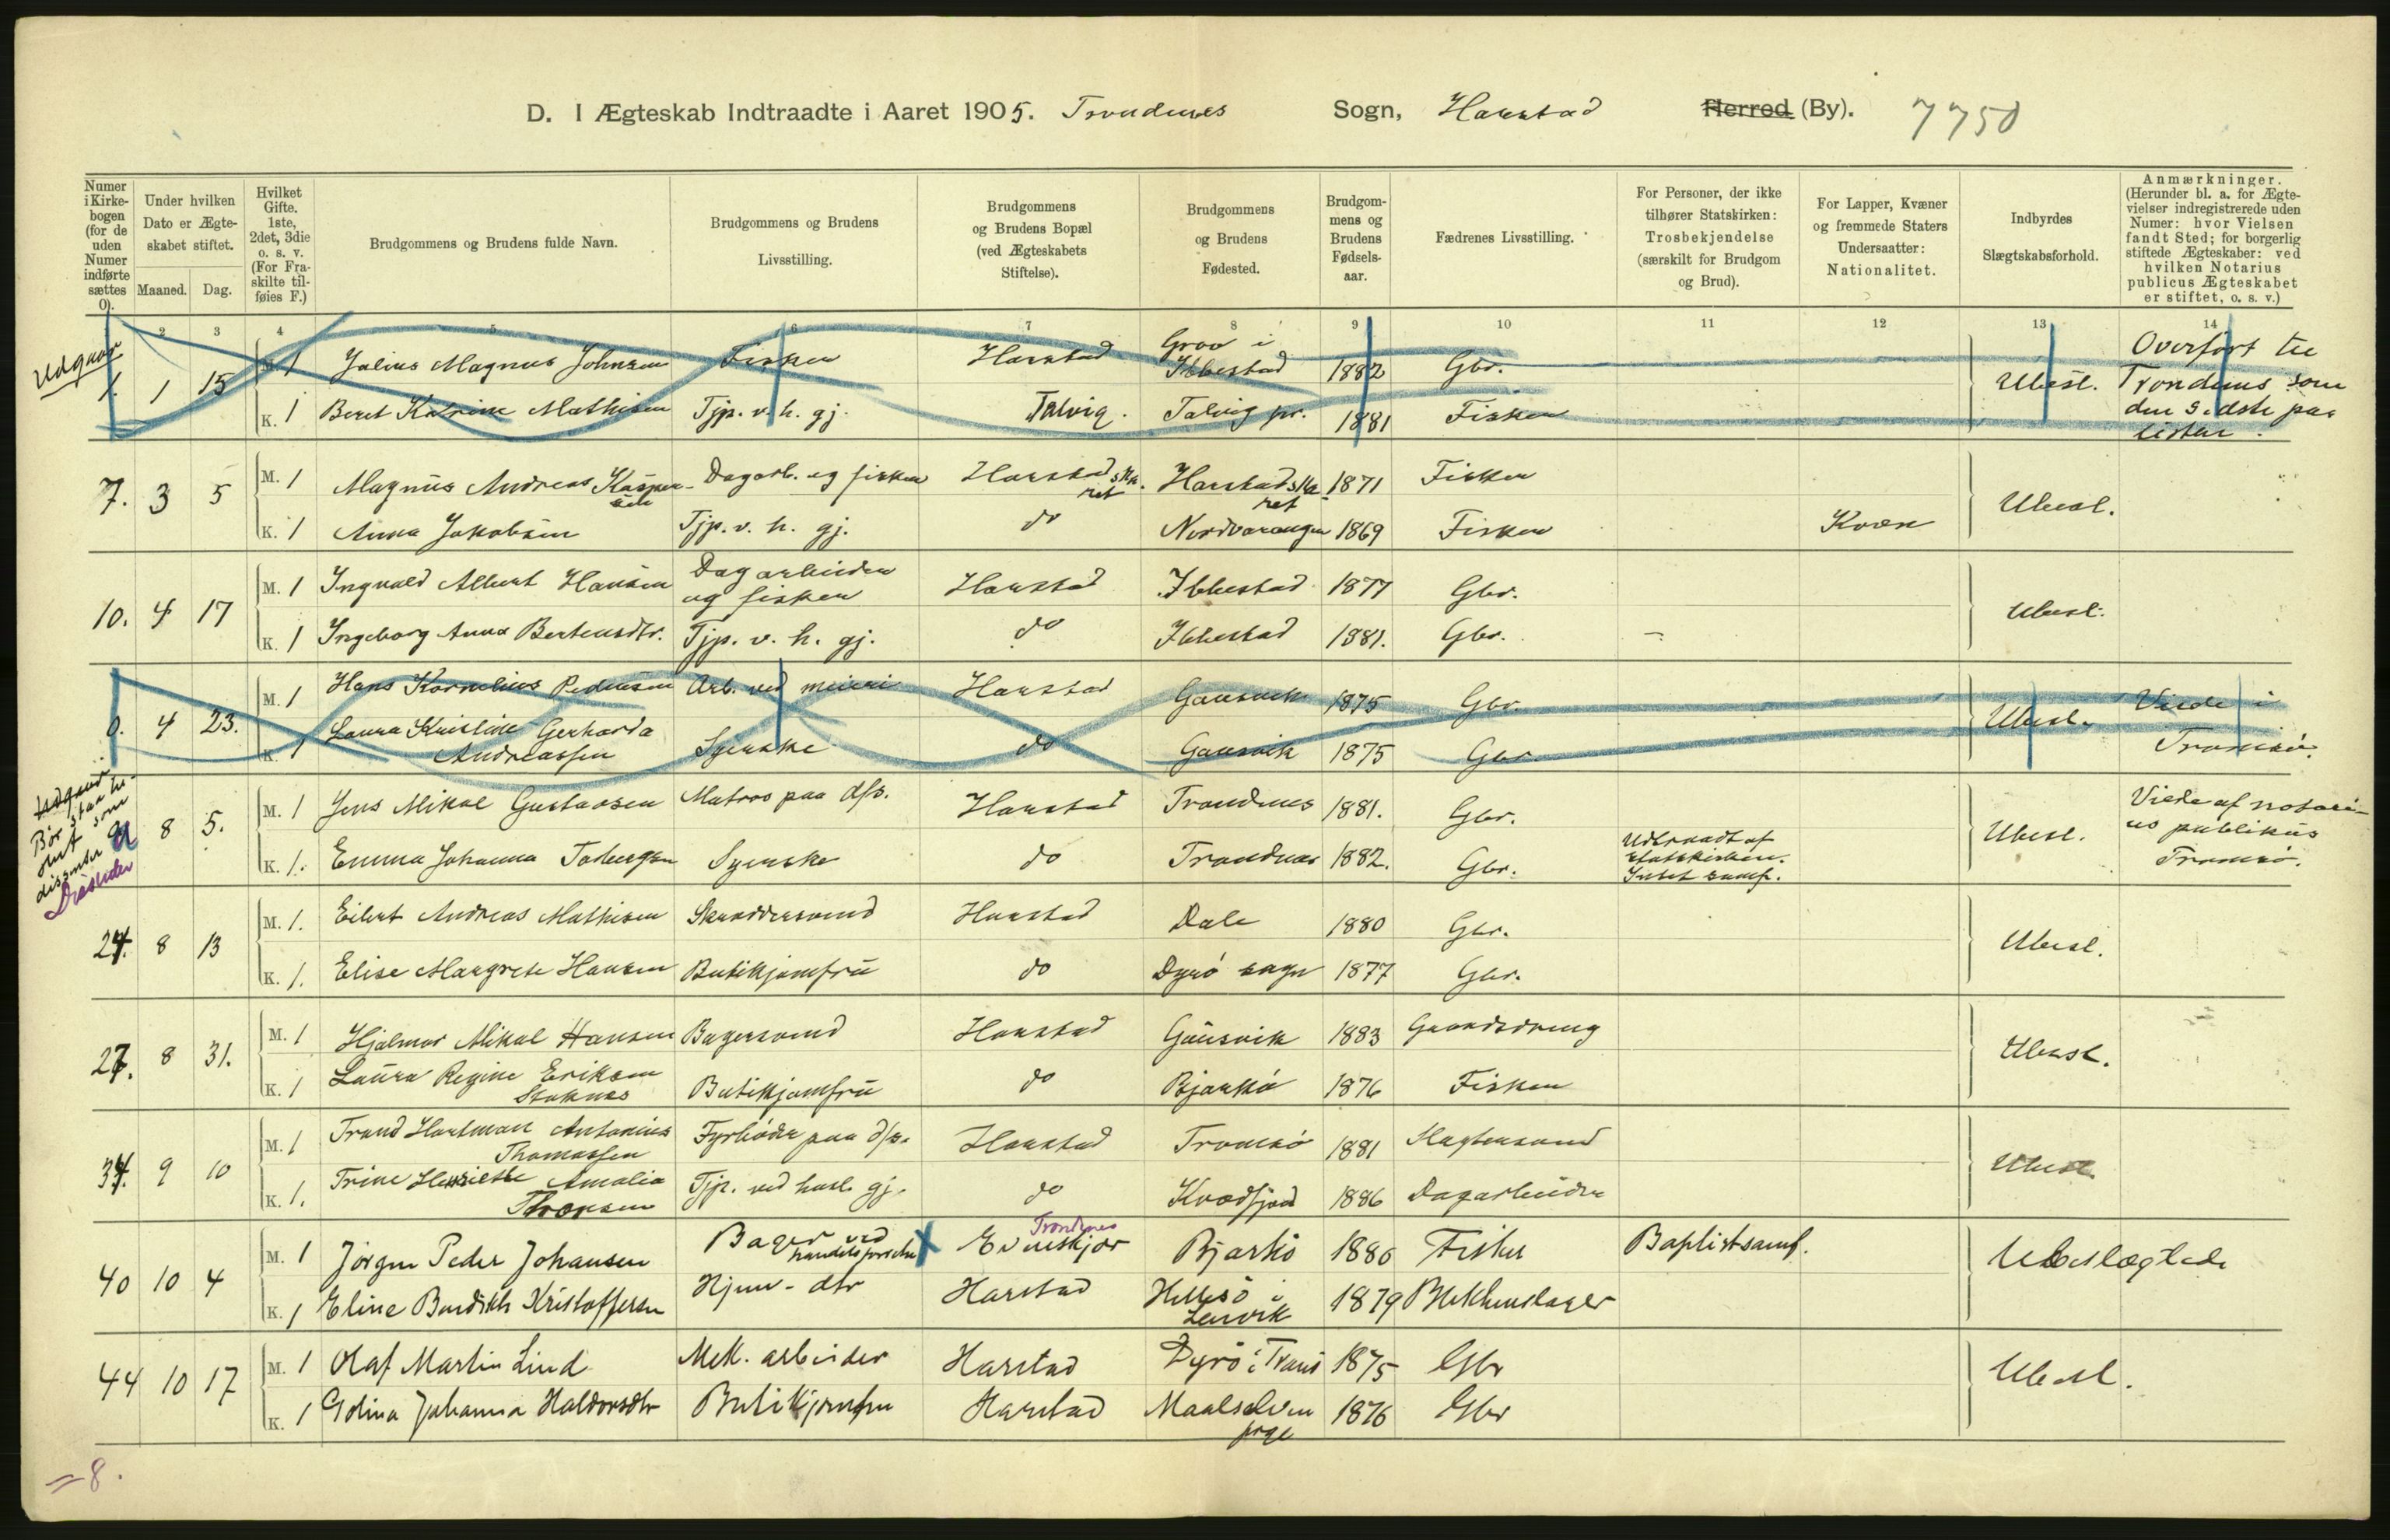 D. I Ægteskab Indtraadte i Aaret 1905. Trondenes Sogn, Harstad Herred (By). 7750
Numer i Kirkebogen (for de uden Numer indførte sættes 0).
Under hvilken Dato er Ægteskabet stiftet.
Maaned. Dag.
Hvilket Gifte. 1ste, 2det, 3die o. s. v. (For Fraskilte tilføies F.)
Brudgommens og Brudens fulde Navn.
Brudgommens og Brudens Livsstilling.
Brudgommens og Brudens Bopæl (ved Ægteskabets Stiftelse).
Brudgommens og Brudens Fødested.
Brudgommens og Brudens Fødselsaar.
Fædrenes Livsstilling.
For Personer, der ikke tilhører Statskirken: Trosbekjendelse (særskilt for Brudgom og Brud).
For Lapper, Kvæner og fremmede Staters Undersaatter: Nationalitet.
Indbyrdes Slægtskabsforhold.
Anmærkninger. (Herunder bl. a. for Ægtevielser indregistrerede uden Numer: hvor Vielsen fandt Sted; for borgerlig stiftede Ægteskaber: ved hvilken Notarius publicus Ægteskabet er stiftet, o. s. v.)
1 2 3 4 5 6 7 8 9 10 11 12 13 14
Udgaar
1. 1 15 M. 1 Julius Magnus Johnsen Fisker Harstad Grov i Ibbestad 1882 Gbr. Ubesl. Overført til Trondenes som den sidste paa listen.
K. 1 Beret Katrine Mathisen Tjp. v. h. gj. Talvig. Talvig pr. 1881 Fisker
7. 3 5 M. 1 Magnus Andreas Kasper- Dagarb. og fisker Harstad 1871 Fisker Ubesl.
K. 1 Anna Jakobsen Tjp. v. h. gj. do Nordvaranger 1869 Fisker Kvæn
10. 4 17 M. 1 Ingvald Albert Hansen Dagarbeider og fisker Harstad Ibbestad 1877 Gbr. Ubesl.
K. 1 Ingeborg Anna Bertensdtr. Tjp. v. h. gj. do Ibbestad 1881. Gbr. -
0. 4 23. M. 1 Hans Kornelius Pedersen Arb. ved meieri Harstad Gausvik 1875 Gbr. Ubesl. Viede i Tromsø.
K. 1 Laura Kristine Gerharda Andreassen Syerske do Gausvik 1875 Gbr.
Bør som dissenter
Dissenter
8 5. M. 1 Jens Mikal Gustavsen Matros paa d/s. Harstad Trondenes 1881. Gbr. Ubesl. Viede af notarius publikus Tromsø.
K. 1. Emma Johanna Syerske do Trondenes 1882. Gbr. Udtraadt af statskirken. Intet samf.
24. 8 13 M. 1. Eilert Andreas Mathisen Skræddersvend Harstad Dale 1880 Gbr. Ubesl.
K. 1. Elise Margrete Hansen Butikjomfru do Dyrø sogn 1877 Gbr.
27. 8 31. M. 1 Hjalmar Mikal Hansen Bagersvend Harstad Gausvik 1883 Gaardsdreng Ubesl.
K. 1 Laura Regine Eriksen Stoknes Butikjomfru do Bjarkø 1876 Fisker
34. 9 10 M. 1 Trond Hartman Antonius Thomassen Fyrbøder paa d/s. Harstad Tromsø 1881 Slagtersvend Ubesl.
K. 1. Trine Henriette Amalia Thorsen Tjp. ved husl. gj. do Kvædfjord 1886 Dagarbeider
40 10 4 M. 1 Jørgen Peder Johansen Bager ved X Trondenes Evenskjær Bjarkø 1880 Fisker Baptistsamf. Ubeslægtede
K. 1 Eline Bendikte Kristoffersen Hjem-dtr Harstad Hellesø i Lenvik 1879 Blikkenslager
44 10 17 M. 1 Olaf Martin Lind Mek. arbeider Harstad Dyrø i Troms 1875 Gbr Ubesl.
K. 1 Golina Johanna Haldorsdtr Butikjomfru Harstad Maalselven prgl 1876 Gbr
= 8.